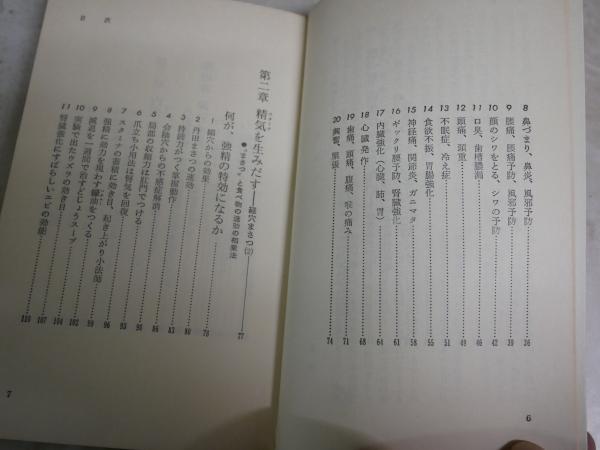 8 鼻づまり、鼻炎、風邪予防 36
9 腰痛、腰痛予防、風邪予防 39
10 顔のシワをとる、シワの予防 42
11 口臭、歯槽膿漏 46
12 頭痛、頭重 49
13 不眠症、冷え症 51
14 食欲不振、胃腸強化 55
15 神経痛、関節炎、ガニマタ 58
16 ギックリ腰予防、腎臓強化 61
17 内臓強化（心臓、肺、胃） 64
18 心臓発作 68
19 歯痛、頭痛、腹痛、喉の痛み 71
20 興奮、緊張 74
6
目次
第二章 精気を生みだす——経穴まさつ(2) 77
●“まさつ”と食べ物の速効の相乗法
何が、強精の特効になるか
1 経穴からの効果 78
2 丹田まさつの速効 80
3 持続力がつく掌握動作 83
4 会陰穴からの不感症解消 86
5 局部の収縮力は肛門でつける 90
6 爪立ち小用法は腎気を回復 93
7 スタミナの蓄積に効き目、起き上がり小法師 95
8 強精に効力を現わす織油をつくる 96
9 減退を一週間で治すどじょうスープ 99
10 実験で出たウズラの効き目 104
11 腎臓強化にすばらしいエビの効能 107
7